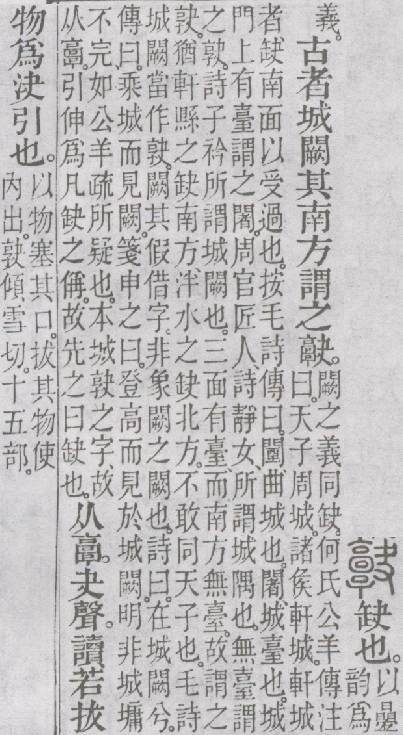 𩫨
缺也。
以曡
韵爲
義。
古者城闕其南方謂之𩫨。
闕之義同缺。何氏公羊傳注
曰。天子周城。諸侯軒城。軒城
者缺南面以受過也。按毛詩傳曰。闉、曲城也。闍、城臺也。城
門上有臺謂之闍。周官匠人、詩靜女所謂城隅也。無臺謂
之𩫨。詩子衿所謂城闕也。三面有臺、而南方無臺。故謂之
𩫨。猶軒縣之缺南方、泮水之缺北方。不敢同天子也。毛詩
城闕當作𩫨。闕其假借字。非象闕之闕也。詩曰。在城闕兮。
傳曰。乘城而見闕。箋申之曰。登高而見於城闕。明非城墉
不完如公羊疏所疑也。本城𩫨之字、故
从𩫏。引伸爲凡缺之偁。故先之曰缺也。
从𩫏。夬聲。讀若拔
物爲決引也。
以物塞其口。拔其物使
內出。𩫨傾雪切。十五部。